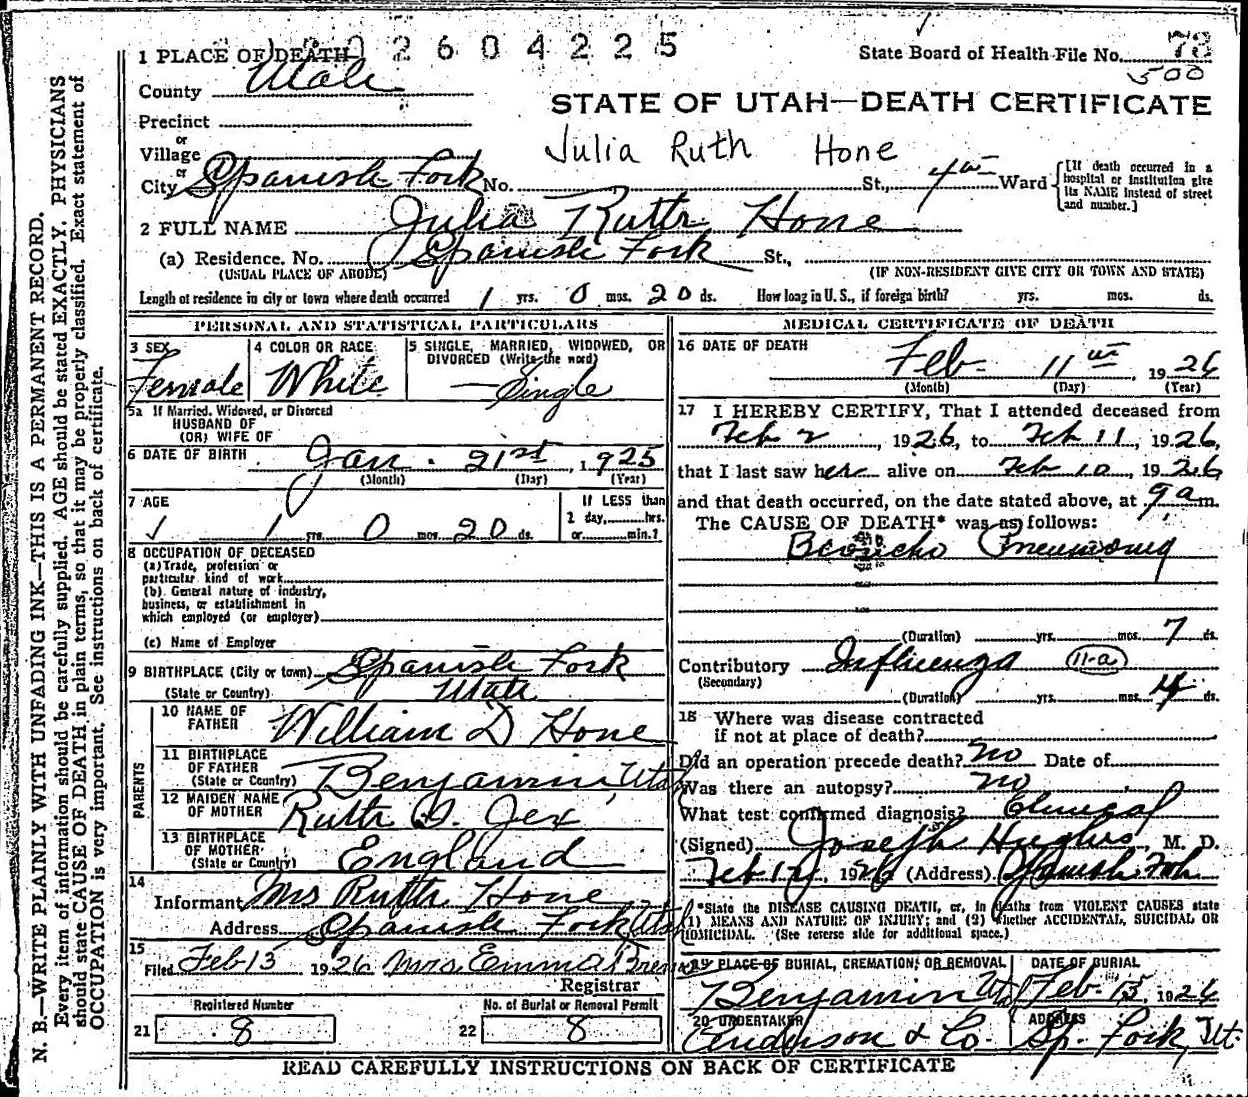 2604225
1 PLACE OF DEATH
State Board of Health File No. 73
500
County Utah
STATE OF UTAH—DEATH CERTIFICATE
Precinct
or
Village
Julia Ruth Hone
or
City Spanish Fork No. St., 4th Ward
[If death occurred in a hospital or institution give its NAME instead of street and number.]
2 FULL NAME Julia Ruth Hone
(a) Residence, No. Spanish Fork St.,
(USUAL PLACE OF ABODE) (IF NON-RESIDENT GIVE CITY OR TOWN AND STATE)
Length of residence in city or town where death occurred 1 yrs. 0 mos. 20 ds. How long in U. S., if foreign birth? yrs. mos. ds.
PERSONAL AND STATISTICAL PARTICULARS
3 SEX
Female
4 COLOR OR RACE
White
5 SINGLE, MARRIED, WIDOWED, OR DIVORCED (Write the word)
Single
5a If Married, Widowed, or Divorced
HUSBAND OF
(OR) WIFE OF
6 DATE OF BIRTH Jan. 21st, 1925
(Month) (Day) (Year)
7 AGE
1 yrs. 0 mos. 20 ds.
If LESS than
1 day, hrs.
or min.?
8 OCCUPATION OF DECEASED
(a) Trade, profession or
particular kind of work
(b) General nature of industry,
business, or establishment in
which employed (or employer)
(c) Name of Employer
9 BIRTHPLACE (City or town) Spanish Fork
(State or Country) Utah
PARENTS
10 NAME OF FATHER William D Hone
11 BIRTHPLACE OF FATHER
(State or Country) Benjamin, Utah
12 MAIDEN NAME OF MOTHER Ruth Jex
13 BIRTHPLACE OF MOTHER
(State or Country) England
14
Informant Mrs Ruth Hone
Address Spanish Fork Utah
15
Filed Feb 13 1926 Mrs. Emma
Registrar
Registered Number
21 8
No. of Burial or Removal Permit
22 8
MEDICAL CERTIFICATE OF DEATH
16 DATE OF DEATH
Feb 11th, 1926
(Month) (Day) (Year)
17 I HEREBY CERTIFY, That I attended deceased from
Feb 2, 1926, to Feb 11, 1926,
that I last saw her alive on Feb 10, 1926
and that death occurred, on the date stated above, at 9 a m.
The CAUSE OF DEATH* was as follows:
Broncho Pneumonia
(Duration) yrs. mos. 7 ds.
Contributory Influenza 11-a
(Secondary)
(Duration) yrs. mos. 4 ds.
18 Where was disease contracted
if not at place of death?
Did an operation precede death? no Date of
Was there an autopsy? no
What test confirmed diagnosis? Clinical
(Signed) Joseph Hughes, M. D.
Feb 12, 1926 (Address) Spanish Fork
*State the DISEASE CAUSING DEATH, or, in deaths from VIOLENT CAUSES state
(1) MEANS AND NATURE OF INJURY; and (2) whether ACCIDENTAL, SUICIDAL OR
HOMICIDAL. (See reverse side for additional space.)
19 PLACE OF BURIAL, CREMATION, OR REMOVAL
Benjamin Utah
DATE OF BURIAL
Feb. 13, 1926
20 UNDERTAKER
Anderson & Co.
ADDRESS
Sp. Fork, Ut.
READ CAREFULLY INSTRUCTIONS ON BACK OF CERTIFICATE
N. B.—WRITE PLAINLY WITH UNFADING INK—THIS IS A PERMANENT RECORD.
Every item of information should be carefully supplied. AGE should be stated EXACTLY. PHYSICIANS
should state CAUSE OF DEATH in plain terms, so that it may be properly classified. Exact statement of
OCCUPATION is very important. See instructions on back of certificate.